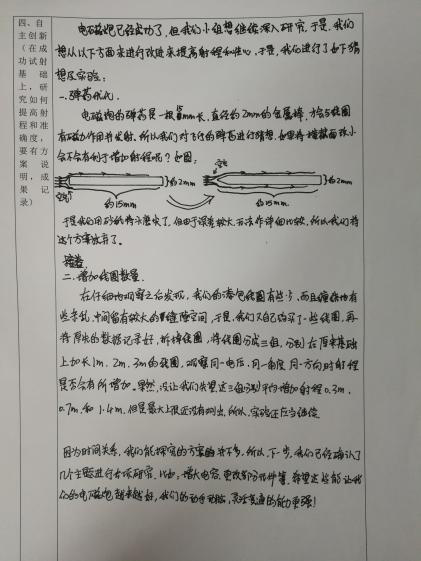 四、自
主创新
(在成
功试射
基础
上，研
究如何
提高射
程和准
确度，
要有方
案说
明，成
果记
录)
电磁炮已经成功了，但我们小组想继续深入研究，于是，我们
想从以下方面来进行改进来提高射程和性心，于是，我们进行了如下猜
想及实验：
一、弹药优化.
电磁炮的弹药是一根15mm长，直径约2mm的金属棒，为会与线圈
有磁力作用并发射。所以我们对飞行的弹药进行猜想，如果将横截面改小
会不会有利于增加射程呢？如图：
约2mm
约15mm
约2mm
约15mm.
于是我们用砂纸将头磨尖了，但由于误差较大，无法作详细比较，所以我们将
这个方案放弃了。
二、增加线圈数量.
在仔细地观察之后发现，我们的漆包线圈有些少，而且缠绕地有
些杂乱，中间留有较大的缝隙空间，于是，我们又自己购买了一些线圈，再
将原先的数据记录好，拆掉线圈，将线圈分成三组，分别在原来基础
上加长1m、2m、3m的线圈，观察同一电压、同一角度、同一方向时射程
是否会有所增加。果然，没让我们失望，这三组分别平均增加射程0.3m、
0.7m、和1.4m，但是最大上限还没有测出，所以，实验还应当继续.
因为时间关系，我们能探究的方案的并不多，所以，下一步，我们已经确认了
几个主题进行专项研究，比如：增大电容、更改部分元件等，希望这些能让我
们的电磁炮越来越好，我们的动手功能，灵活变通的能力更强！